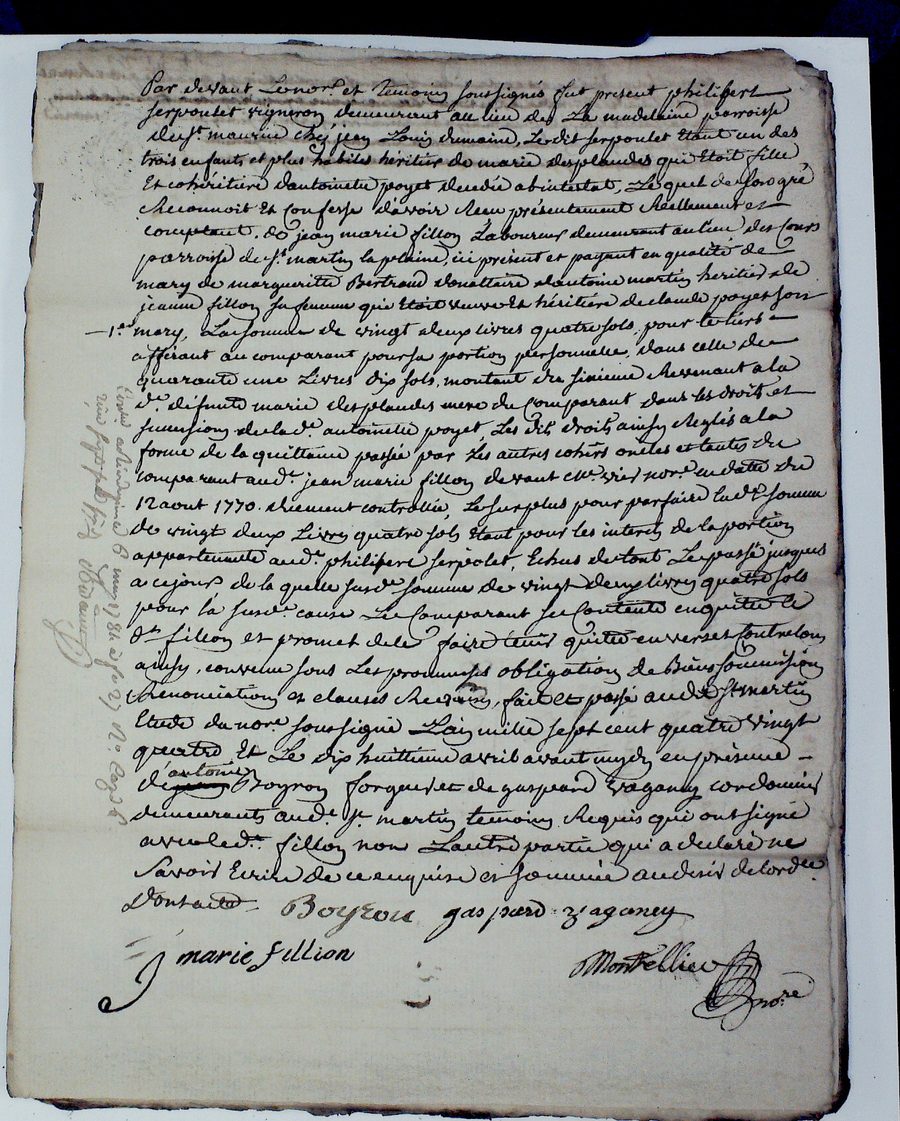 Par devant Le nore. et temoins soussignés fut present philibert
serpoulet vigneron demeurant au lieu de La madelaine parroisse
de st. maurice chez jean Louis dumaine, Le dit serpoulet Etant un des
trois enfants et plus habile heritier de marie desplandes qui Etoit fille
Et cohéritiere d'antoinette poyet decedée abintestat, Le quel de son gré
Reconnoit Et Confesse d'avoir Receu présentement Réellement et
comptant, de jean marie fillon Laboureur demeurant au lieu des Cours
parroisse de st. martin la plaine, ici present et payant en qualité de
mary de margueritte Bertrand donattaire d'antoine martin heritier de
jeanne fillon sa femme qui Etoit veuve Et héritiere de claude poyet son
1.er mary, La somme de vingt deux livres quatre sols, pour le tiers
afférant au comparant pour sa portion personnelle, dans celle de
quarante une Livres dix sols, montant du sixieme Revenant a la
de. défunte marie desplandes mere du Comparant dans les droits et
successions de lade. antoinette poyet, Les dits droits ainsy Reglés a la
forme de la quittance passée par Les autres cohérs oncles et tantes du
comparant aud. jean marie fillon devant Me. nore. en datte du
12 aout 1770. duement controllée, Le surplus pour parfaire lade. somme
de vingt deux Livres quatre sols Etant pour les interets de la portion
appartenante aud. philibert serpolet, Echus de tout Le passé jusques
a ce jour, de la quelle susde. somme de vingt deux livres quatre sols
pour la susde. cause Le Comparant se Contente en quitte le
dt. fillon et promet de le faire tenir quitte envers et contre tous
ainsy, convenu sous Les promesses obligation de Biens soumission
Renonciation et clauses Requises, fait et passé aud. st. martin
Etude du nore. soussigné L'an mille sept cent quatre vingt
quatre Et Le dix huittieme avril avant mydy en présence
d'antoine Boyron forgeur et de gaspard zagoney cordonnier
demeurants aud. st. martin temoins Requis qui ont signé
avec led. fillon non L'autre partie qui a declaré ne
Savoir Ecrire de ce enquise et sommée au desir de l'ordce.
Dont acte
Boyron gaspard zagoney
j marie fillion
Montellier nore